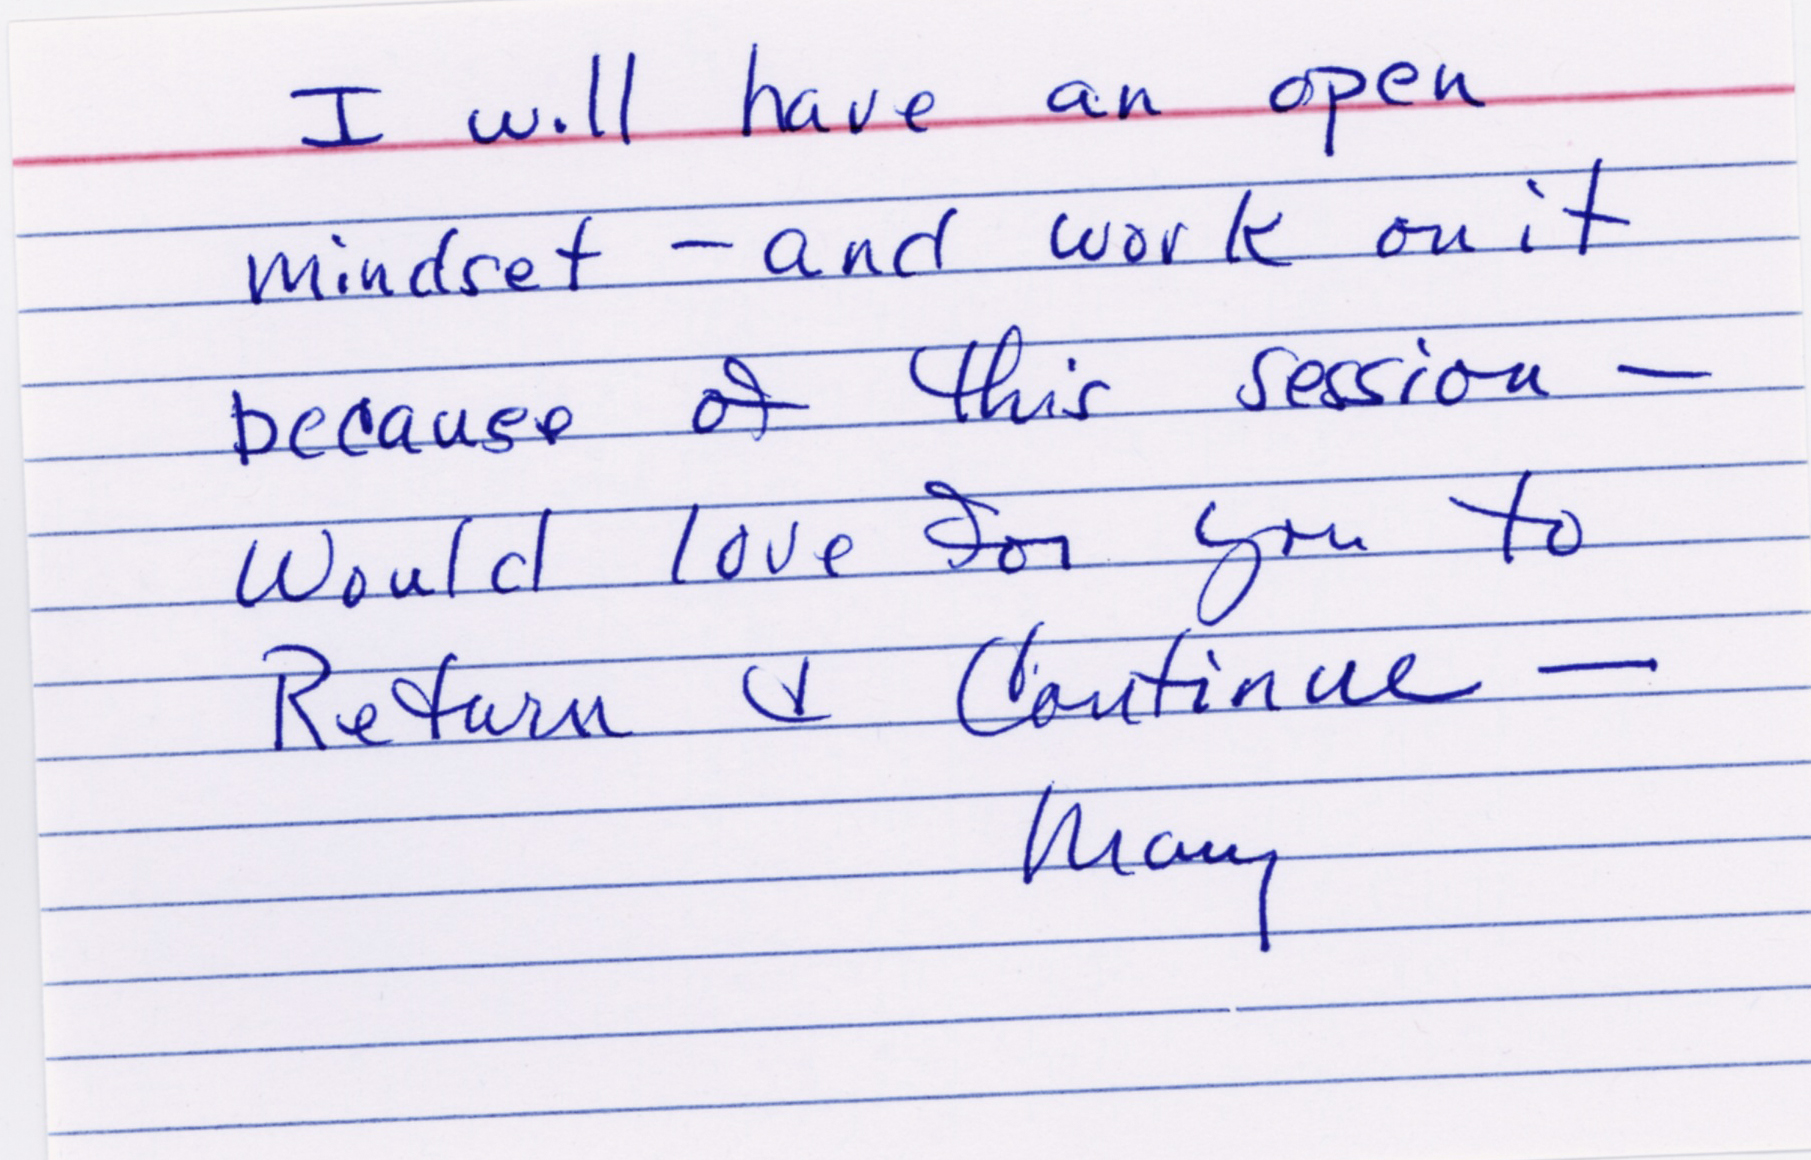 I will have an open
mindset - and work on it
because of this session -
Would love for you to
Return & Continue -
Mary